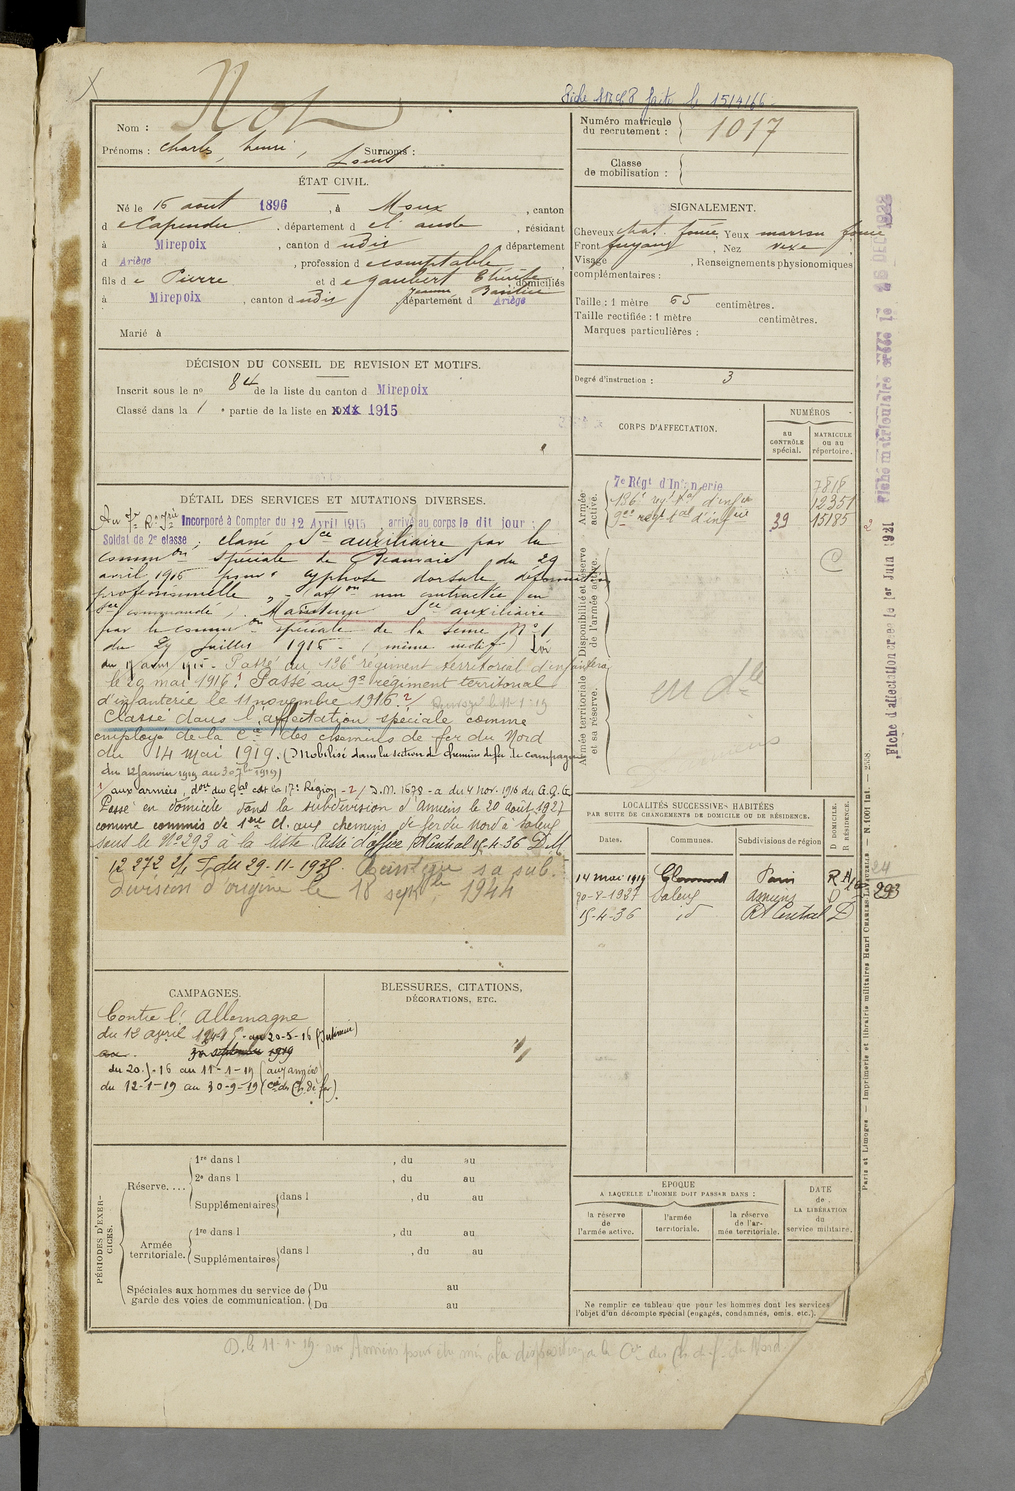 Fiche faite le 15/4/66
Nom : Not
Prénoms : Charles, henri, Louis Surnoms :
Numéro matricule du recrutement : 1017
Classe de mobilisation :
ÉTAT CIVIL.
Né le 16 août 1896, à Moux, canton
d e Capendu, département d e l'aude, résidant
à Mirepoix, canton d udit, département
d Ariège, profession d e comptable
fils d e Pierre et d e gaubert Thérèse
Jeanne domiciliés
à Mirepoix, canton d udit département d Ariège
Marié à
SIGNALEMENT.
Cheveux chat. foncé Yeux marron foncé
Front fuyant Nez vexe
Visage , Renseignements physionomiques
complémentaires :
Taille : 1 mètre 65 centimètres.
Taille rectifiée : 1 mètre centimètres.
Marques particulières :
Degré d'instruction : 3
DÉCISION DU CONSEIL DE REVISION ET MOTIFS.
Inscrit sous le no 84 de la liste du canton d Mirepoix
Classé dans la 1e partie de la liste en 1915
DÉTAIL DES SERVICES ET MUTATIONS DIVERSES.
Au 7e Rt d'Irie Incorporé à Compter du 12 Avril 1915 arrivé au corps le dit jour
Soldat de 2e classe ; classé Sce auxiliaire par la
common spéciale de Beauvais du 29
avril 1915 pour cyphose dorsale, déformation
professionnelle, affon non contractée en
sce commandé. Maintenu Sce auxiliaire
par la common spéciale de la Seine No 1
du 29 Juillet 1915 (même motif)
Passé au 136e régiment territorial d'infanterie
le 29 mai 1916. 1 Passé au 9e régiment territorial
d'infanterie le 11 novembre 1916. 2/
Classé dans l'affectation spéciale comme
employé de la Cie des chemins de fer du Nord
du 14 mai 1919. (Mobilisé dans la section de chemins de fer de campagne
du 12 janvier 1919 au 30 7bre 1919)
1/ aux armées, don du Gal cdt la 17e Région - 2/ D.M. 1679 - a du 4 nov. 1916 du G.Q.G.
Passé en domicile dans la subdivision d'Amiens le 20 août 1927
comme commis de 1ère cl. aux chemins de fer du Nord à Saleux
sous le No 293 à la liste. Passé d'office Rt Central 15-4-36 D.M
12 272 2/1 T. du 29-11-1935. Réintègre sa sub-
division d'origine le 18 septbre 1944
CORPS D'AFFECTATION.
NUMÉROS
AU CONTRÔLE spécial.
MATRICULE ou au répertoire.
Armée active.
7e Régt d'Infanterie 7818
136e regt tal d'infie 12351
9e regt tal d'infie 39 15185
Disponibilité et réserve de l'armée active.
Armée territoriale et sa réserve.
LOCALITÉS SUCCESSIVES HABITÉES
PAR SUITE DE CHANGEMENTS DE DOMICILE OU DE RÉSIDENCE.
Dates. Communes. Subdivisions de région D DOMICILE. R RÉSIDENCE.
14 mai 1919 Clermont Paris R
20-8-1927 Saleux Amiens D 293
15-4-36 id Rt Central D
CAMPAGNES.
Contre l'Allemagne
du 12 avril 1915 - au 20-5-16 (Intérieur)
au 30 septembre 1919
du 20-5-16 au 11-1-19 (aux armées)
du 12-1-19 au 30-9-19 (Cie des Ch. de fer).
BLESSURES, CITATIONS,
DÉCORATIONS, ETC.
PÉRIODES D'EXERCICES.
Réserve....
1re dans l , du au
2e dans l , du au
Supplémentaires dans l , du au
Armée territoriale.
1re dans l , du au
Supplémentaires dans l , du au
Spéciales aux hommes du service de garde des voies de communication.
Du au
Du au
ÉPOQUE
A LAQUELLE L'HOMME DOIT PASSER DANS :
la réserve de l'armée active.
l'armée territoriale.
la réserve de l'armée territoriale.
DATE de LA LIBÉRATION du service militaire.
Ne remplir ce tableau que pour les hommes dont les services
l'objet d'un décompte spécial (engagés, condamnés, omis, etc.).
D. le 11-1-19. sur Amiens pour être mis à la disposition de la Cie des ch. de f. du Nord.
Paris et Limoges. — Imprimerie et librairie militaires Henri CHARLES-LAVAUZELLE — N. 1001 Int. — 258.
Fiche d'affectation créée le 1er Juin 1921
Fiche matriculaire créée le